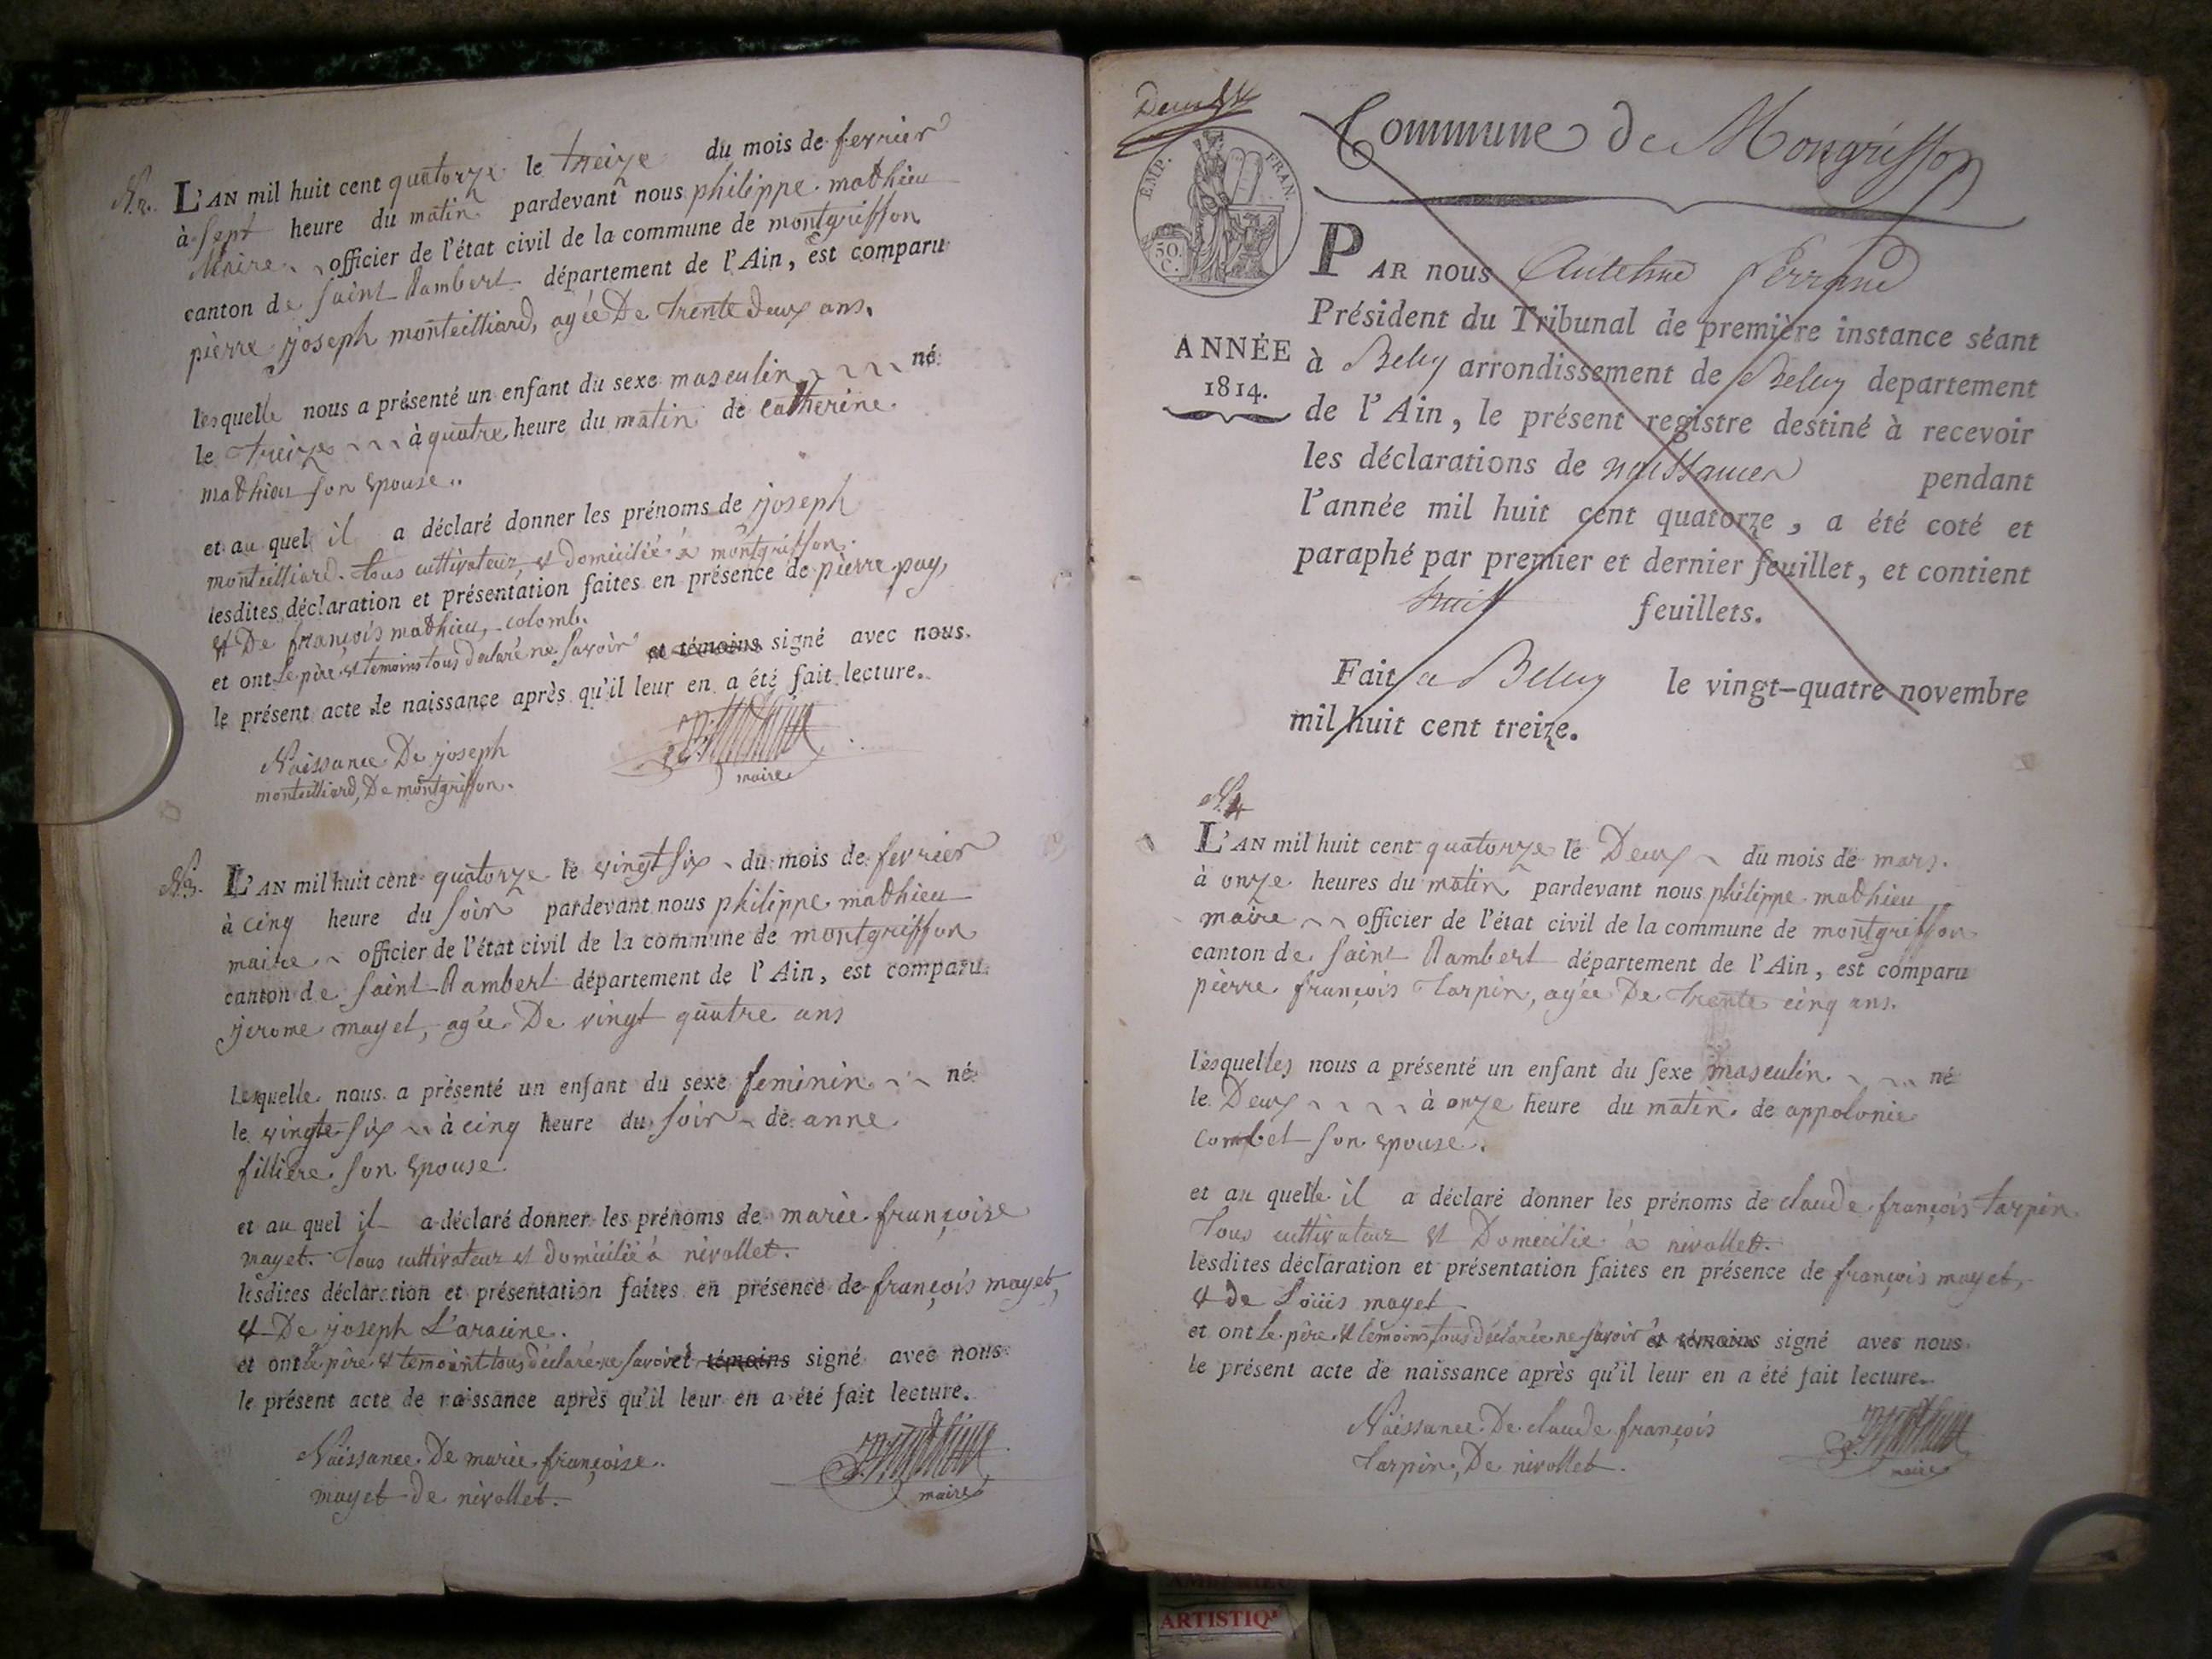 N.2. L'AN mil huit cent quatorze le treize du mois de fevrier
à sept heure du matin pardevant nous philippe mathieu
Maire officier de l'état civil de la commune de montgriffon
canton de saint Rambert département de l'Ain, est comparu
pierre joseph monteilliard, agée De trente deux ans.
lesquelle nous a présenté un enfant du sexe masculin né
le treize à quatre heure du matin de catherine
mathieu son epouse..
et au quel il a déclaré donner les prénoms de joseph
monteilliard. tous cultivateur et domicilié à montgriffon.
lesdites déclaration et présentation faites en présence de pierre puy,
et De françois mathieu, colomb.
et ont le père et temoins tous declaré ne savoir et témoins signé avec nous.
le présent acte de naissance après qu'il leur en a été fait lecture.
Naissance De joseph
monteilliard, De montgriffon.
maire
N.3. L'AN mil huit cent quatorze le vingt six du mois de fevrier
à cinq heure du soir pardevant nous philippe mathieu
maire officier de l'état civil de la commune de montgriffon
canton de saint Rambert département de l'Ain, est comparu
jerome mayet, agée De vingt quatre ans
lesquelle nous a présenté un enfant du sexe feminin né
le vingte six à cinq heure du soir de anne
filliere son epouse
et au quel il a déclaré donner les prénoms de marie françoise
mayet. tous cultivateur et domicilié à nivollet.
lesdites déclaration et présentation faites en présence de françois mayet,
et De joseph L'aracine.
et ont le père et temoint tous déclaré ne savoir et témoins signé avec nous
le présent acte de naissance après qu'il leur en a été fait lecture.
Naissance De marie françoise
mayet de nivollet.
maire
Commune de Mongriffon
EMP. FRAN.
50.
C.
PAR nous Antelme Ferrand
Président du Tribunal de première instance séant
ANNÉE
1814.
à Belley arrondissement de Belley departement
de l'Ain, le présent registre destiné à recevoir
les déclarations de naissances pendant
l'année mil huit cent quatorze, a été coté et
paraphé par premier et dernier feuillet, et contient
huit feuillets.
Fait a Belley le vingt-quatre novembre
mil huit cent treize.
N.4
L'AN mil huit cent quatorze le Deux du mois de mars.
à onze heures du matin pardevant nous philippe mathieu
maire officier de l'état civil de la commune de montgriffon
canton de saint Rambert département de l'Ain, est comparu
pierre françois tarpin, agée De trente cinq ans.
lesquelles nous a présenté un enfant du sexe masculin. né
le Deux à onze heure du matin. de appolonie
combet son epouse.
et au quelle il a déclaré donner les prénoms de claude françois tarpin.
tous cultivateur et Domicilié à nivollet.
lesdites déclaration et présentation faites en présence de françois mayet,
et de Loüis mayet
et ont le père et témoins tous déclarée ne savoir et témoins signé avec nous.
le présent acte de naissance après qu'il leur en a été fait lecture.
Naissance De claude françois
tarpin, De nivollet.
maire
ARTISTIQ